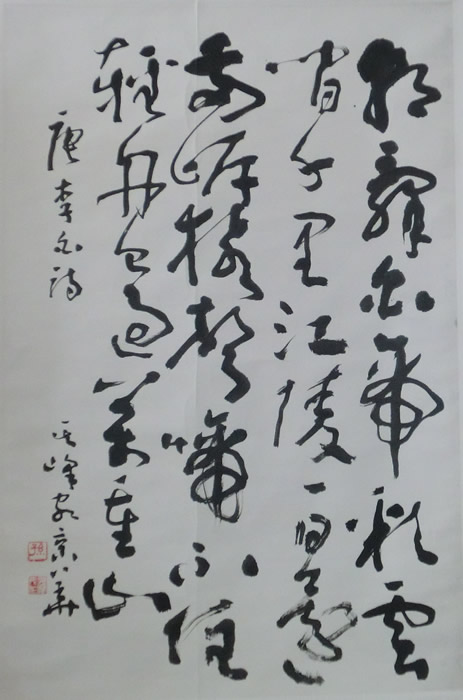 朝辭白帝彩雲
間千里江陵一日還
兩岸猿聲啼不住
輕舟已過萬重山
唐李白詩
其峰